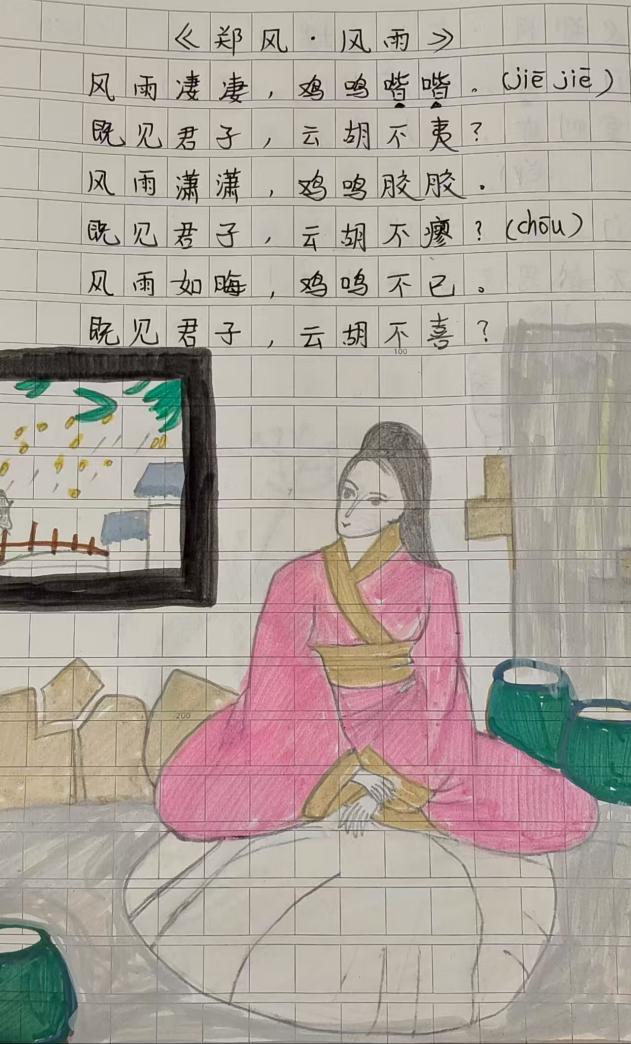 《郑风·风雨》
风雨凄凄，鸡鸣喈喈。(jiē jiē)
既见君子，云胡不夷？
风雨潇潇，鸡鸣胶胶。
既见君子，云胡不瘳？(chōu)
风雨如晦，鸡鸣不已。
既见君子，云胡不喜？
100
200